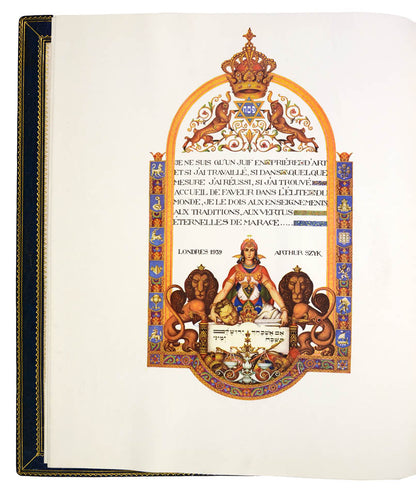 JE NE SUIS QU'UN JUIF EN PRIÈRE D'ART
ET SI J'AI TRAVAILLÉ, SI DANS QUELQUE
MESURE J'AI RÉUSSI, SI J'AI TROUVÉ
ACCUEIL DE FAVEUR DANS L'ÉLITE DU
MONDE, JE LE DOIS AUX ENSEIGNEMENTS
AUX TRADITIONS, AUX VERTUS
ETERNELLES DE MA RACE....
LONDRES 1939 ARTHUR SZYK
אם אשכחך ירושל
תשכח ימיני